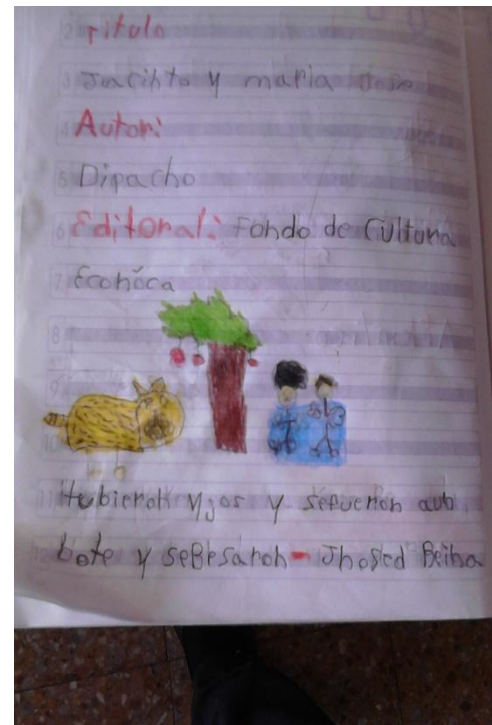 Título
Jacihto y maria Jose
Autor:
Dipacho
Editoral: Fondo de Cultura
Ecohóca
Hubieroh yjos y sefueroh aub
bote y seBesaroh - Jhosed Beiha